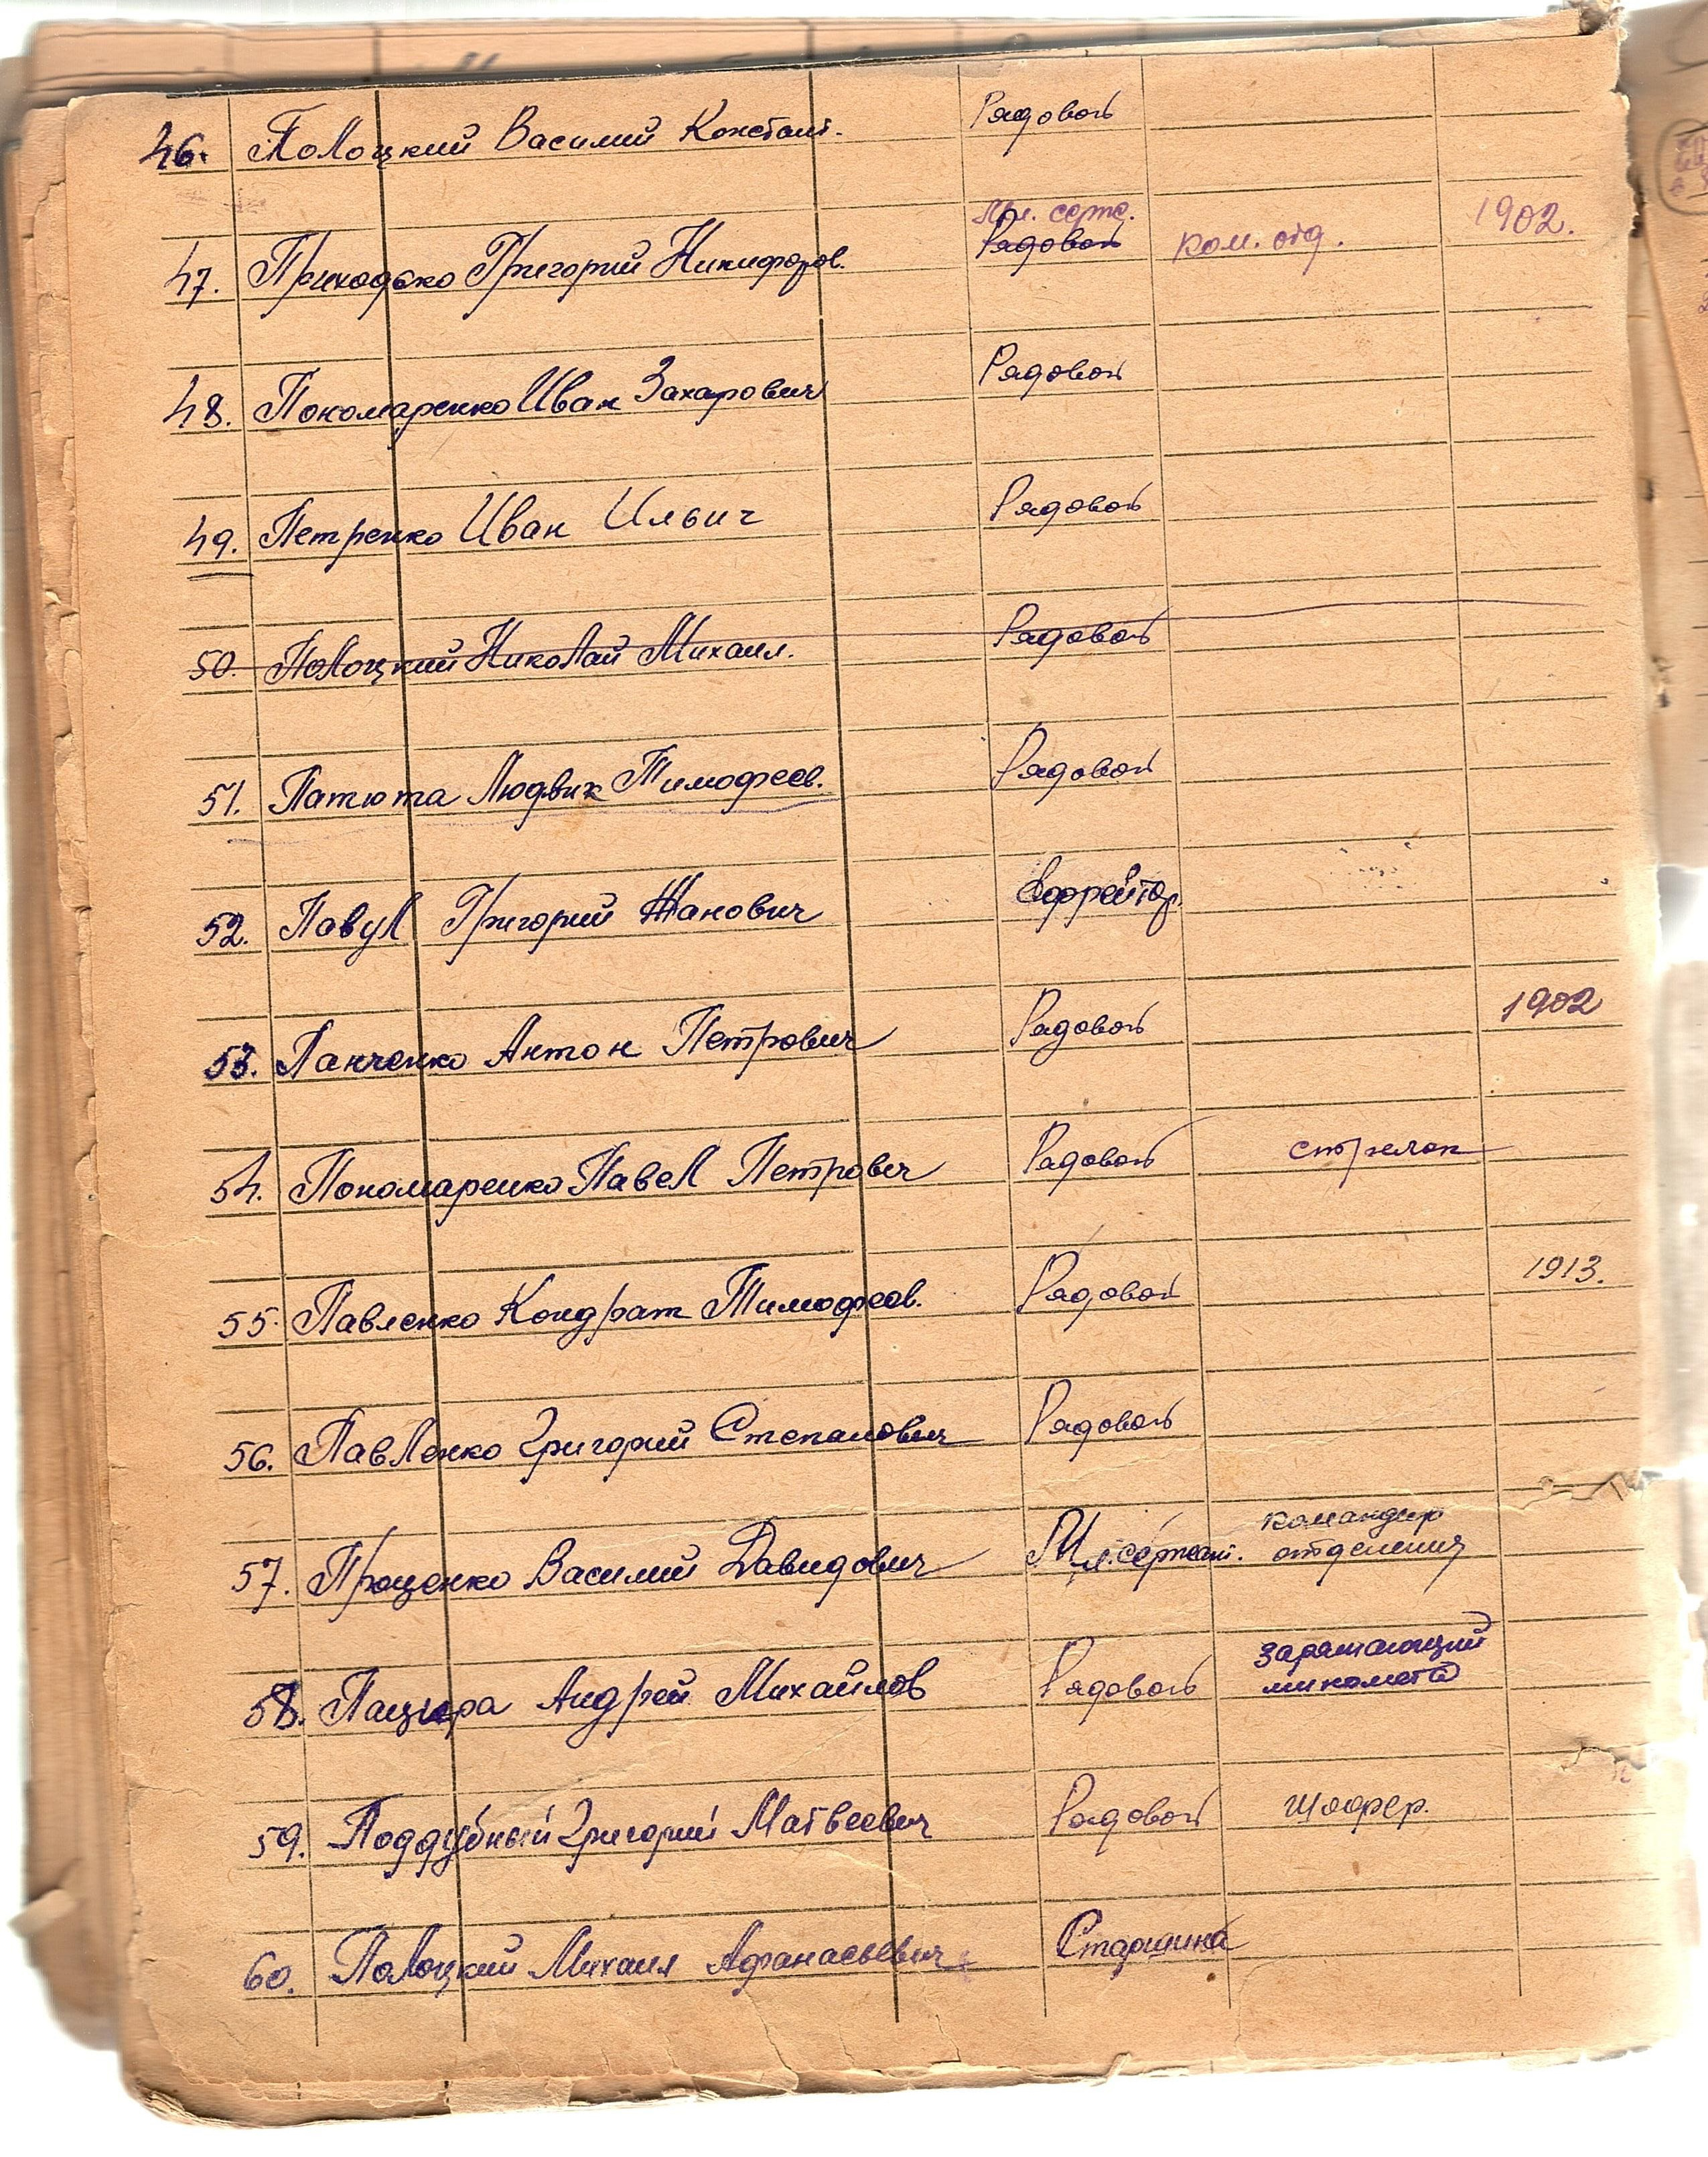 46. Полоцкий Василий Констант. Рядовой
Мл. серж. 1902.
47. Приходько Григорий Никифоров. Рядовой ком. отд.
48. Пономаренко Иван Захарович Рядовой
49. Петренко Иван Ильич Рядовой
50. Полоцкий Николай Михаил. Рядовой
51. Патюта Людвик Тимофеев. Рядовой
52. Павул Григорий Жанович Ефрейтор.
53. Панченко Антон Петрович Рядовой 1902
54. Пономаренко Павел Петрович Рядовой стрелок
55. Павленко Кондрат Тимофеев. Рядовой 1913.
56. Павленко Григорий Степанович Рядовой
командир
57. Проценко Василий Давидович Мл. сержант. отделения
заряжающий
58. Пацюра Андрей Михайлов Рядовой миномета
59. Поддубный Григорий Матвеевич Рядовой шофер.
60. Полоцкий Михаил Афанасьевич Старшина